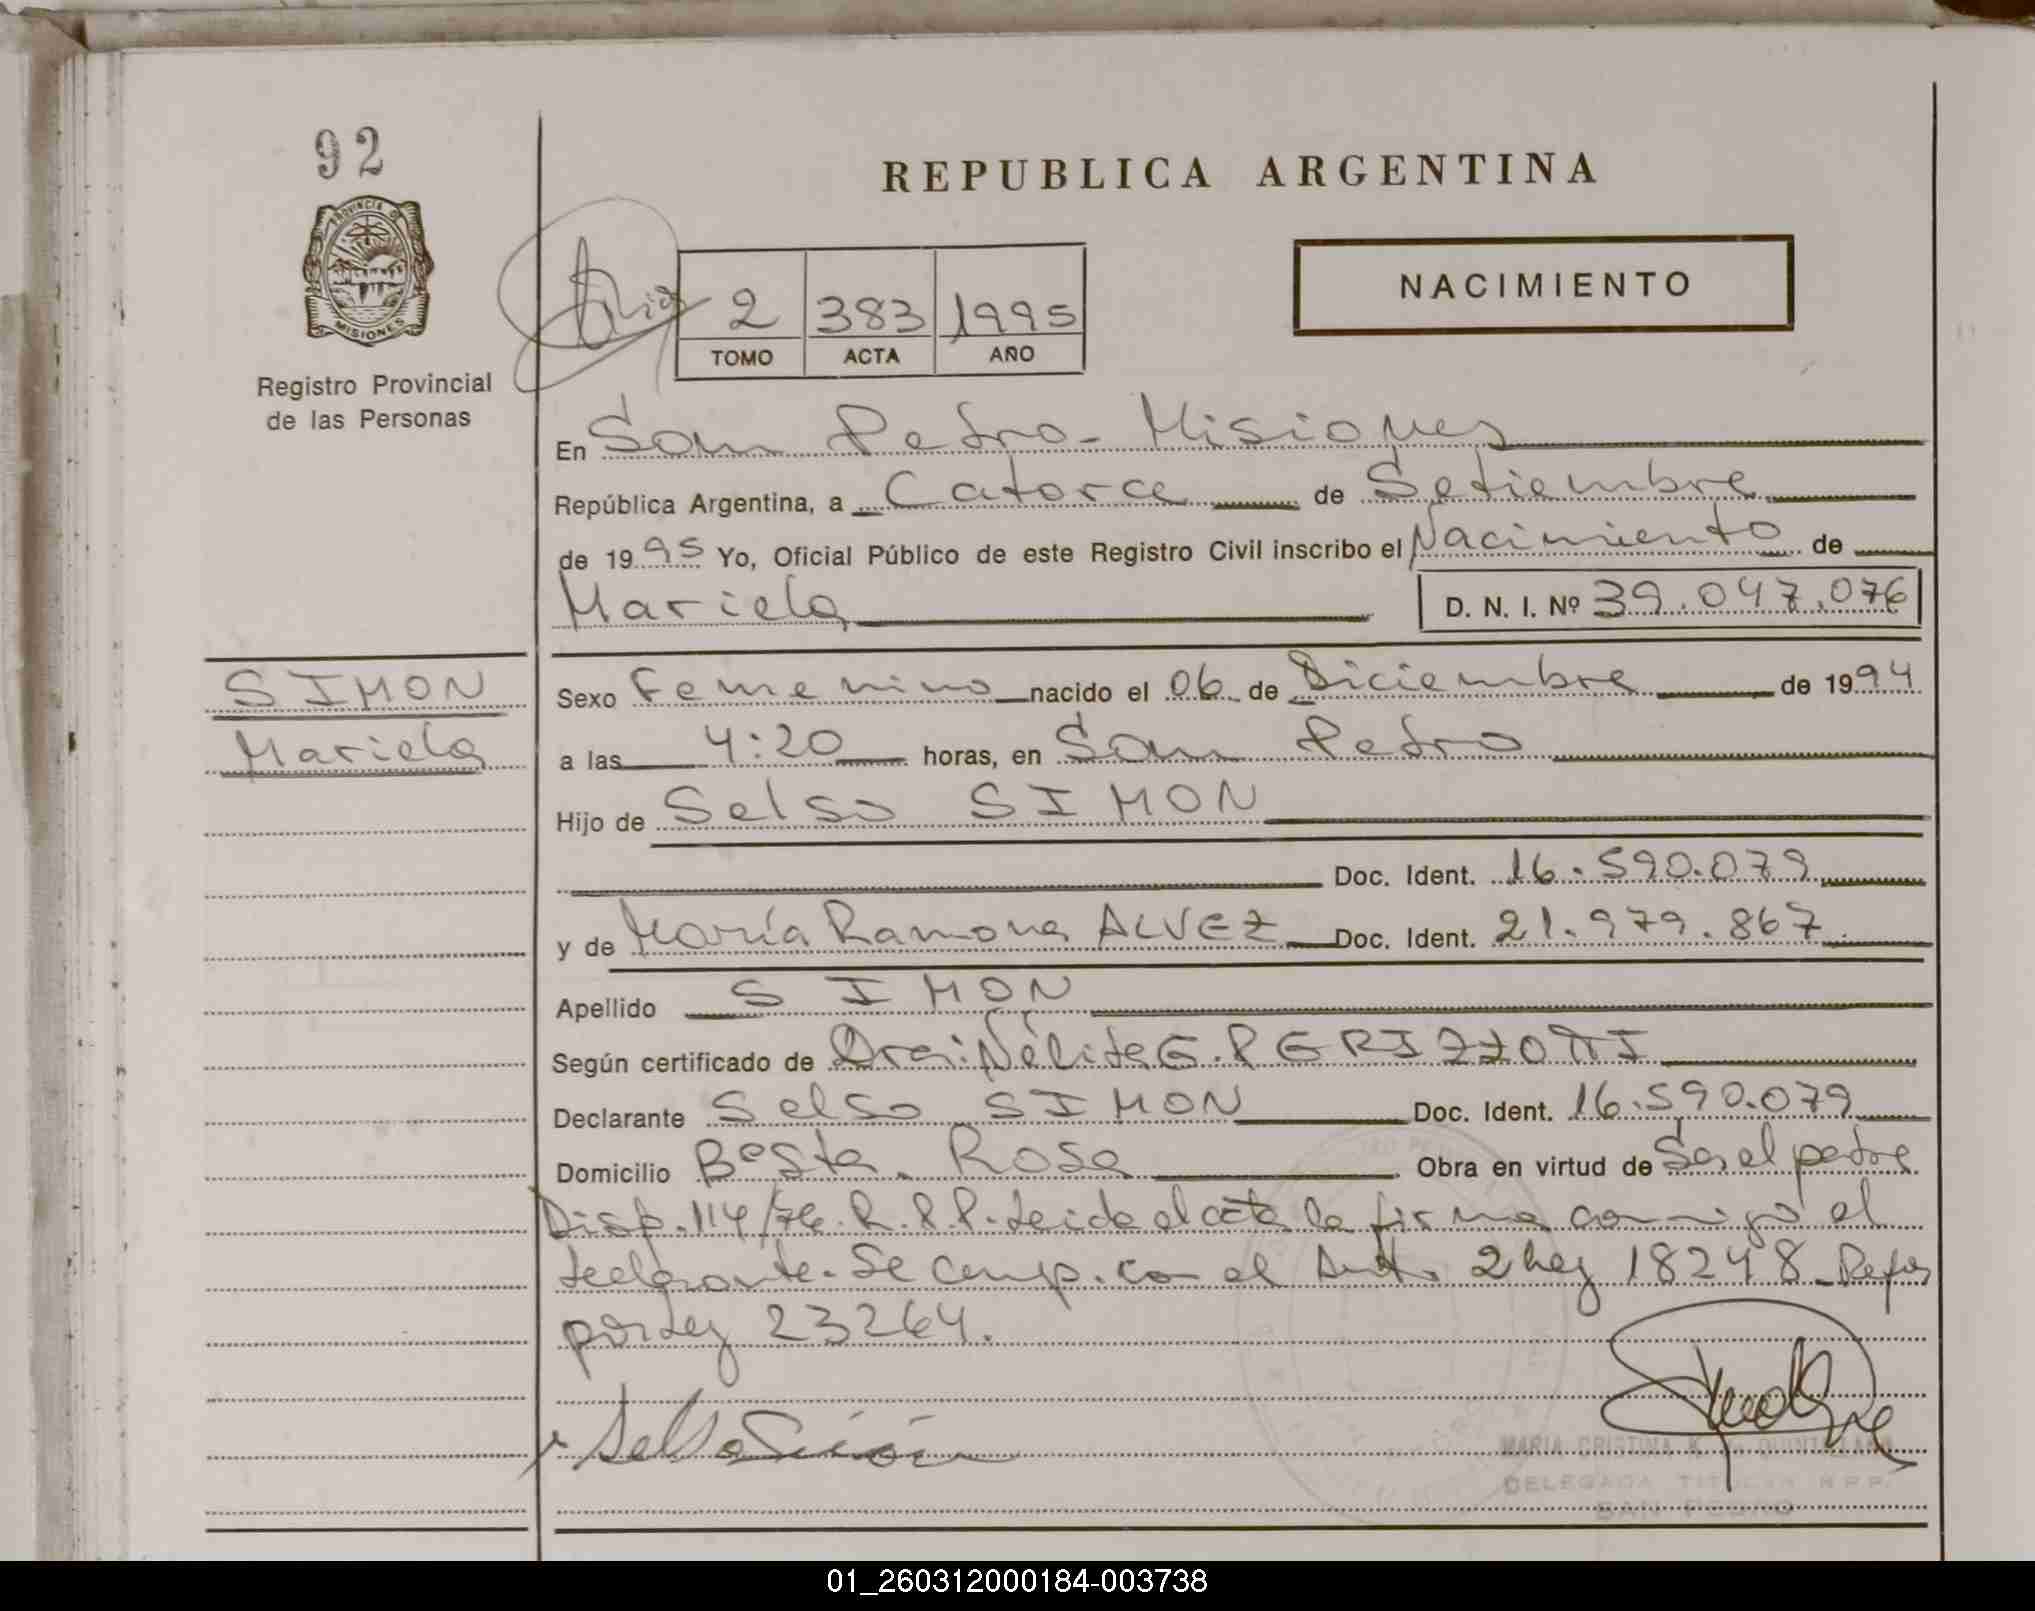 92
REPUBLICA ARGENTINA
PROVINCIA DE
MISIONES
NACIMIENTO
2 383 1995
TOMO ACTA AÑO
Registro Provincial
de las Personas
En San Pedro - Misiones
República Argentina, a Catorce de Setiembre
de 1995 Yo, Oficial Público de este Registro Civil inscribo el Nacimiento de
Mariela D. N. I. Nº 39.047.076
SIMON
Mariela
Sexo Femenino nacido el 06 de Diciembre de 1994
a las 4:20 horas, en San Pedro
Hijo de Selso SIMON
Doc. Ident. 16.590.079
y de María Ramona ALVEZ Doc. Ident. 21.979.867
Apellido SIMON
Según certificado de Dra: Nélida G. PERIZZOTTI
Declarante Selso SIMON Doc. Ident. 16.590.079
Domicilio Bº Sta. Rosa Obra en virtud de Ser el padre
Disp. 114/76. R.P.P. Leida el acta la firma conmigo el
declarante. Se comp. con el 2 ley 18248
por Ley 23264.
Selso Simón
MARIA CRISTINA K. de QUINTELLANA
DELEGADA TITULAR R.P.P.
SAN PEDRO
01_260312000184-003738